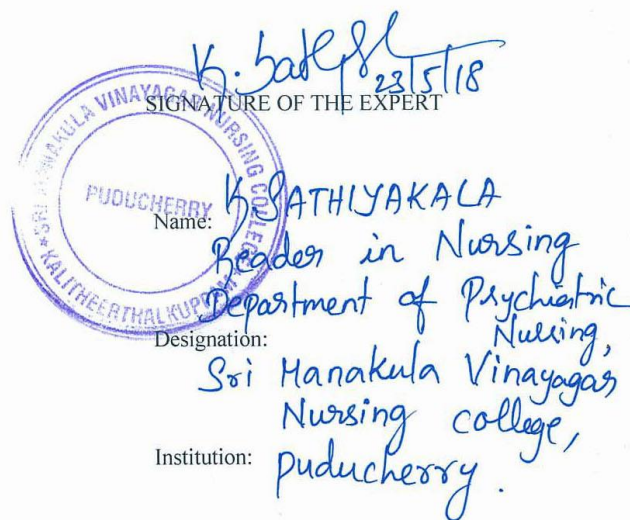 K. Sathya 23/5/18
SIGNATURE OF THE EXPERT
SRI MANAKULA VINAYAGAR NURSING COLLEGE
KALITHEERTHALKUPPAM
PUDUCHERRY
Name: K. SATHIYAKALA
Reader in Nursing
Department of Psychiatric
Nursing,
Designation:
Sri Manakula Vinayagar
Nursing college,
Institution: Puducherry.